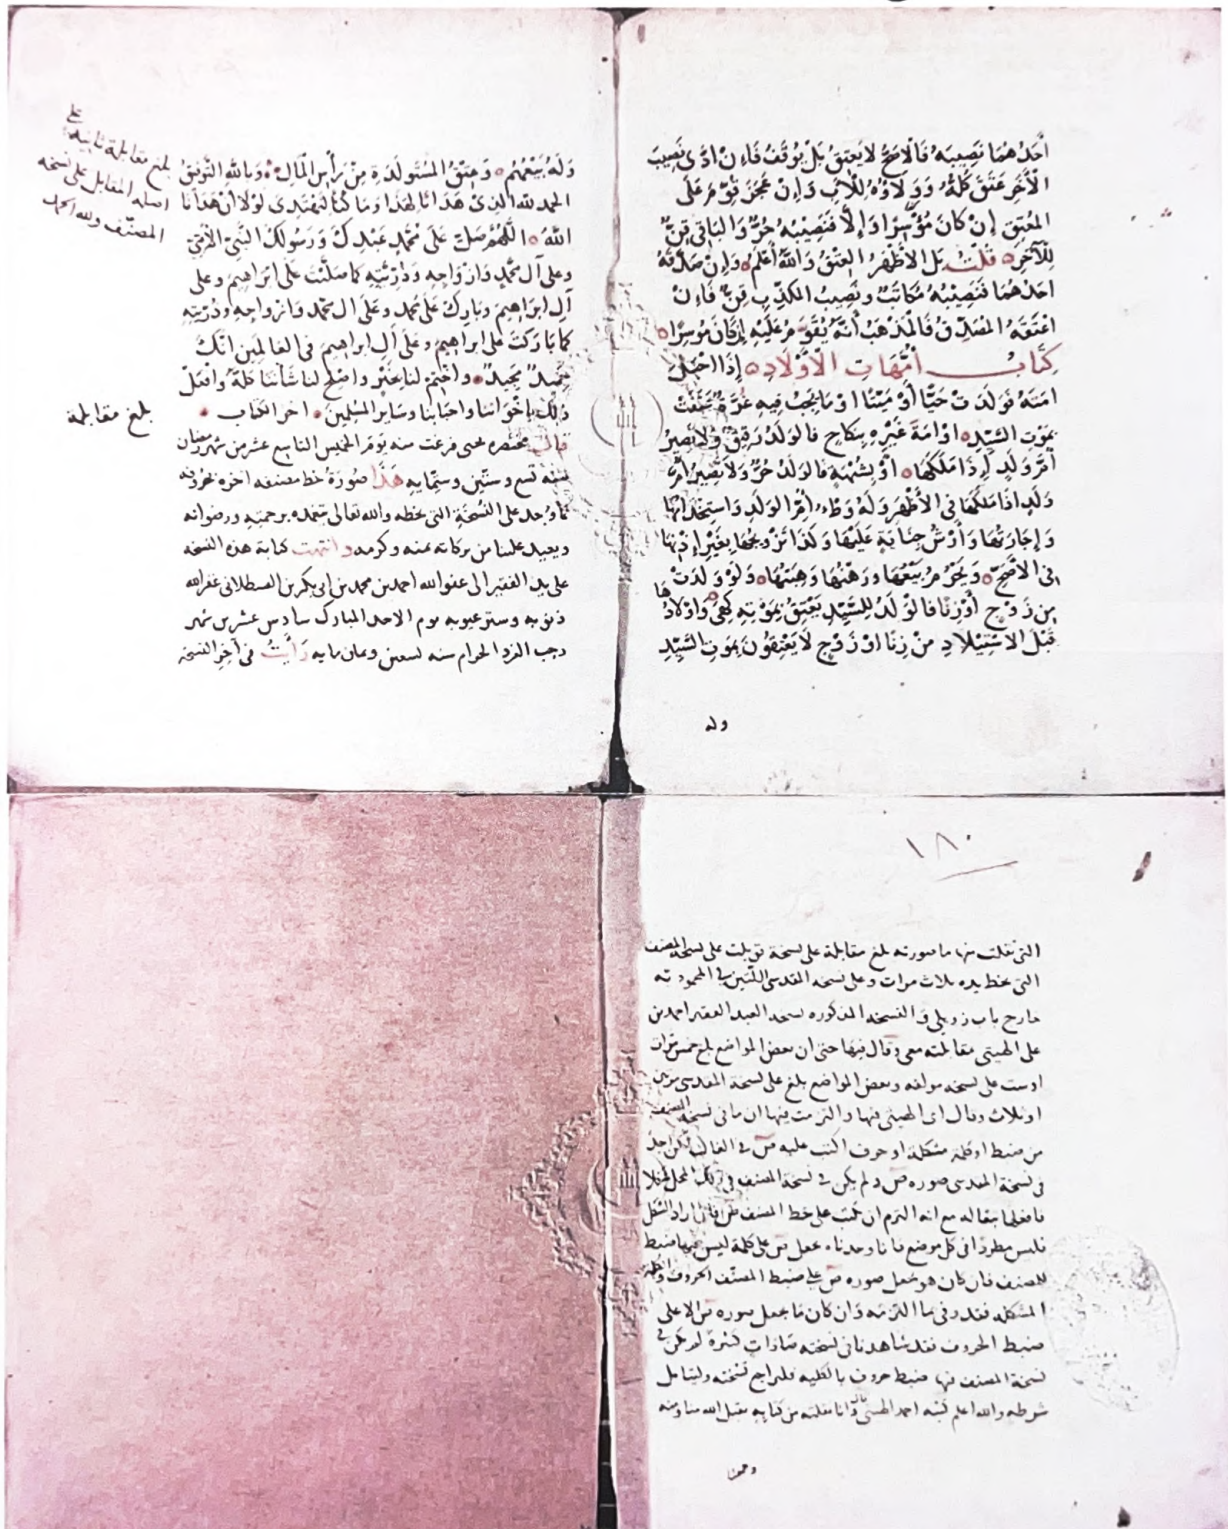 أَحَدُهُمَا نَصِيبَهُ فَالْأَصَحُّ لَا يَعْتِقُ بَلْ يُوقَفُ فَإِنْ أَدَّى نَصِيبَ
الْآخَرِ عَتَقَ كُلُّهُ وَوَلَاؤُهُ لِلْأَبِ وَإِنْ عَجَزَ قُوِّمَ عَلَى
المُعْتِقِ إِنْ كَانَ مُوْسِرًا وَإِلَّا فَنَصِيْبُهُ حُرٌّ وَالبَاقِي قِنٌّ
لِلْآخَرِ قُلْتُ بَل الأظْهَرُ العِتْقُ وَاللَّهُ أَعْلَمُ وَإِنْ صَدَّقَهُ
احَدُهُمَا فَنَصِيْبُهُ مُكَاتَبٌ وَنَصِيبُ المكَذِّبِ قِنٌّ فَإِنْ
اعْتَقَهُ المُصَدِّقُ فَالمَذْهَبُ أَنَّهُ يُقَوَّمُ عَلَيْهِ إِنْ كَانَ مُوسِرًا
كِتَابُ أُمَّهَاتِ الْأَوْلَادِ إِذَا احْبَلَ
امَتَهُ فَوَلَدَتْ حَيًّا أَوْ مَيْتًا اوْ مَا يَجِبُ فِيهِ غُرَّةٌ عَتَقَتْ
بمَوْتِ السَّيِّدِ اوْ امَةَ غَيْرِهِ بِنِكَاحٍ فالوَلَدُ رَقِيقٌ وَلَا تَصِيرُ
أُمَّ وَلَدٍ إِذَا مَلَكَهَا أَوْ بِشُبْهَةٍ فَالوَلَدُ حُرٌّ وَلَا تَصِيرُ أُمَّ
وَلَدٍ اذَا مَلَكَهَا فى الأَظْهَرِ وَلَهُ وَطْءُ أُمِّ الوَلَدِ وَاسْتِخْدَامُهَا
وَإِجَارَتُهَا وَأَرْشُ جِنَايَةٍ عَلَيْهَا وَكَذَا تَزْوِيجُهَا بِغَيْرِ إِذْنِهَا
فى الأَصَحِّ وَيَحْرُمُ بَيْعُهَا وَرَهْنُهَا وَهِبَتُهَا وَلَوْ وَلَدَتْ
مِن زَوْجٍ أَوْ زِنًا فالوَلَدُ لِلسَّيِّدِ يَعْتِقُ بِمَوْتِهِ كَهِيَ وَاوْلَادُهَا
قَبْلَ الاسْتِيْلَادِ مِنْ زِنًا اوْ زَوْجٍ لَا يَعْتِقُونَ بِمَوتِ السَّيِّدِ
وله
وَلَهُ بَيْعُهُمْ وَعِتْقُ المُسْتَولَدَةِ مِنْ رَأْسِ المَالِ وَبالله التَّوفِيقُ
الحمد لله الذِى هَدَانَا لِهَذَا وَمَا كُنَّا لِنَهْتَدِىَ لَوْلَا أنْ هَدَانَا
اللهُ اللَّهُمَّ صَلِّ عَلَى مُحَمَّدٍ عَبْدِكَ وَرَسُولكَ النَّبِيِّ الأُمِّيِّ
وعلى آل محَمَّدٍ وَازْوَاجِهِ وَذُرِّيَّتِهِ كَمَا صَلَّيْتَ عَلَى ابْرَاهِيمَ وعلى
آلِ ابرَاهِيمَ وَبَارِكْ عَلَى مُحَمدٍ وَعلى ال محمَّد وَازوَاجِهِ وذُرِّيَّتِهِ
كما بَارَكتَ على ابراهِيمَ وعَلَى آلِ ابراهِيمَ فى العَالمِينَ انَّكَ
حَمِيدٌ مَجِيدٌ وَاخْتِمْ لنَا بِخَيْرٍ وَاصْلِحْ لنا شَأنَنَا كُلَّهُ وافْعَلْ
ذَلِكَ بِإخْوَاننَا وَاحبَابنَا وَسَايرِ المُسْلِمِينَ اخر الكتاب
قالَ مختصره يحيى فرغت منه يَومَ الخميس التاسع عشر من شهر رمضان
سنة تسع وستين وستمايه هَذَا صُورَةُ خط مصنفه اخره بحروفه
كما وُجدَ على النُّسْخَةِ التى بخطه والله تعالى يتغمده برحمته ورضوانه
ويعيد علينا من بركاته بمنه وكرمه وانتهت كتابة هذه النسخه
على يد الفقير الى عفو الله احمد بن محمد بن ابى بكر بن القسطلانى غفر الله
ذنوبه وستر عيوبه يوم الاحد المبارك سادس عشرين شهر
رجب الفرد الحرام سنه تسعين وثمان مايه رَأَيْتُ فى آخر النسخة
بلغ مقابلة ثانية على
اصله المقابل على نسخة
المصنّف ولله الحمد
بلغ مقابلة
١٨٠
التى نقلت منها ما صورته بلغ مقابلة على نسخة قوبلت على نسخة المصنف
التى بخط يده ثلاث مرات وعلى نسخة المقدسى اللَّتين فى المحموديه
خارج باب زويلى والنسخه المذكوره نسخه العبد الفقير احمد بن
على الهيتى مقابلته معى وقال فيها حتى ان بعض المواضع بلغ خمس مرات
او ست على نسخه مولفه وبعض المواضع بلغ على نسخة المقدسى مرتين
او ثلاث وقال اى الهيتى فيها والتزمت فيها ان ما فى نسخة المصنف
من ضبط او كلمة مشكلة او حرف اكتب عليه صـ فى الغالب لكن اجد
فى نسخة المقدسى صوره صـ ولم يكن فى نسخة المصنف فى ذلك المحل
فليس مطردًا فى كل موضع فانا وجدناه يجعل صـ على كلمة ليس فيها ضبط
للمصنف فان كان هو يجعل صوره صـ على ضبط المصنّف الحروف والكلمة
المشكله فقد وفى بما التزمه وان كان ما يجعل صوره صـ الا على
ضبط الحروف فقد شاهدنا فى نسخته صادَات كثيرة لم يكن فى
نسخة المصنف فيها ضبط حروف بالكليه فليراجع نسخته وليتامل
شرطه والله اعلم كتبه احمد الهيتى وانا نقلته من كتابه تقبل الله منا ومنه